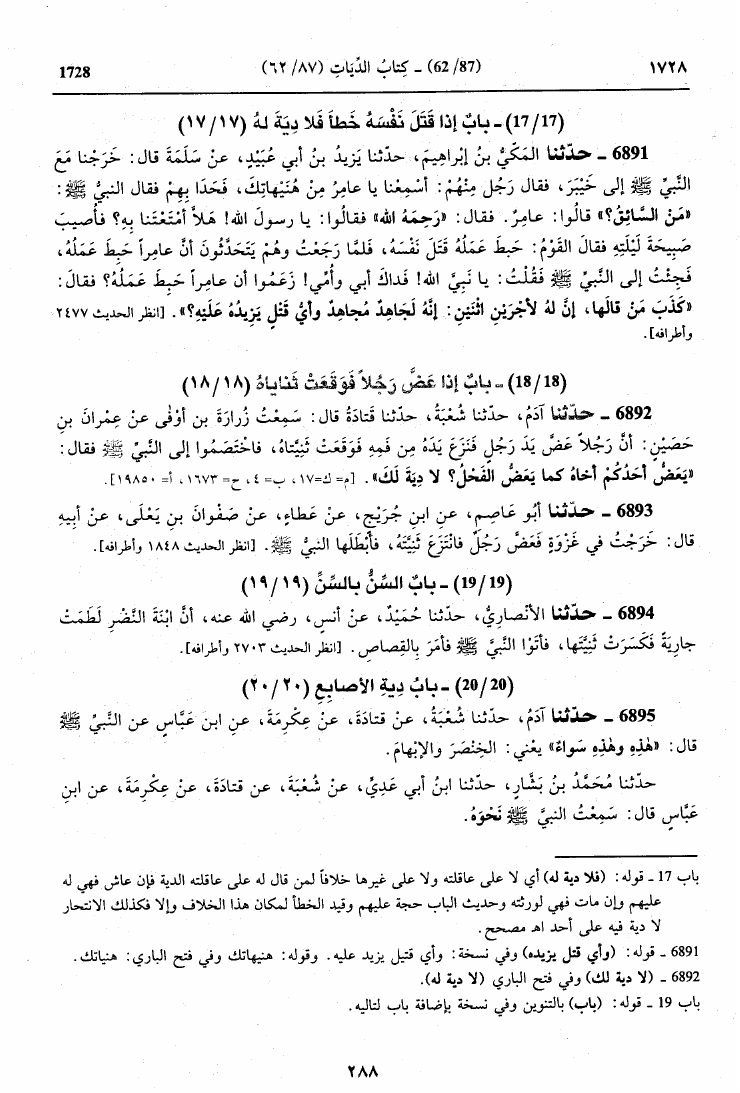 ١٧٢٨ (62/87) ـ كِتابُ الدِّيَاتِ (٦٢/٨٧) 1728
(17/17) ـ بابٌ إذا قَتَلَ نَفْسَهُ خَطأً فَلا دِيَةَ لهُ (١٧/١٧)
6891 ـ حدّثنا المَكِّيُّ بنُ إبْراهِيمَ، حدّثنا يَزِيدُ بنُ أبي عُبَيْدٍ، عنْ سَلَمَةَ قال: خَرَجْنا مَعَ
النَّبيِّ ﷺ إلى خَيْبَرَ، فقال رَجُلٌ مِنْهُمْ: أسْمِعْنا يا عامِرُ مِنْ هُنَيْهاتِكَ، فَحَدَا بِهِمْ فقال النبيُّ ﷺ:
«مَنِ السَّائِقُ؟» قالُوا: عامِرٌ. فقال: «رَحِمَهُ الله» فقالُوا: يا رسولَ الله! هَلاَّ أمْتَعْتَنا بِهِ؟ فأُصِيبَ
صَبِيحَةَ لَيْلَتِهِ فقال القَوْمُ: حَبِطَ عَمَلُهُ قَتَلَ نَفْسَهُ، فلمَّا رَجَعْتُ وهُمْ يَتَحَدَّثُونَ أنَّ عامِراً حَبِطَ عَمَلُهُ،
فَجِئْتُ إلى النَّبيِّ ﷺ فَقُلْتُ: يا نَبِيَّ الله! فداكَ أبي وأُمِّي! زَعَمُوا أن عامِراً حَبِطَ عَمَلُهُ؟ فقال:
«كَذَبَ مَنْ قالَها، إنَّ لهُ لأجْرَيْنِ اثْنَيْنِ: إنَّهُ لَجَاهِدٌ مُجاهِدٌ وأيُّ قَتْلٍ يَزِيدُهُ عَلَيْهِ؟». [انظر الحديث ٢٤٧٧
وأطرافه].
(18/18) ـ بابٌ إذا عَضَّ رَجُلاً فَوَقَعَتْ ثَناياهُ (١٨/١٨)
6892 ـ حدّثنا آدَمُ، حدّثنا شُعْبَةُ، حدّثنا قَتادَةُ قال: سَمِعْتُ زُرارَةَ بن أوْفٰى عنْ عِمْرانَ بنِ
حُصَيْنٍ: أنَّ رَجُلاً عَضَّ يَدَ رَجُلٍ فَنَزَعَ يَدَهُ مِن فَمِهِ فَوَقَعَتْ ثَنِيَّتاهُ، فاخْتَصَمُوا إلى النَّبيِّ ﷺ فقال:
«يَعَضُّ أحَدُكُمْ أخاهُ كما يَعَضُّ الفَحْلُ؟ لا دِيَةَ لَكَ». [م= ك=١٧، ب= ٤، ح= ١٦٧٣، أ= ١٩٨٥٠].
6893 ـ حدّثنا أبُو عَاصِمٍ، عنِ ابنِ جُرَيْجٍ، عنْ عَطاءٍ، عنْ صَفْوانَ بنِ يَعْلَى، عنْ أبِيهِ
قال: خَرَجْتُ في غَزْوَةٍ فَعَضَّ رَجُلٌ فانْتَزَعَ ثَنِيَّتَهُ، فأبْطَلَها النبيُّ ﷺ. [انظر الحديث ١٨٤٨ وأطرافه].
(19/19) ـ بابٌ السِّنُّ بالسِّنِّ (١٩/١٩)
6894 ـ حدّثنا الأنْصارِيُّ، حدّثنا حُمَيْدٌ، عنْ أنسٍ، رضي الله عنه، أنَّ ابْنَةَ النَّضْرِ لَطَمَتْ
جارِيَةً فَكَسَرَتْ ثَنِيَّتَها، فأتَوُا النَّبيَّ ﷺ فأمَرَ بالقِصاصِ. [انظر الحديث ٢٧٠٣ وأطرافه].
(20/20) ـ بابُ دِيَةِ الأصابِعِ (٢٠/٢٠)
6895 ـ حدّثنا آدَمُ، حدّثنا شُعْبَةُ، عنْ قتادَةَ، عنْ عِكْرِمَةَ، عنِ ابنِ عَبَّاسٍ عنِ النَّبيِّ ﷺ
قال: «هٰذِهِ وهٰذِهِ سَواءٌ» يعْني: الخِنْصَرَ والإبْهامَ.
حدّثنا مُحَمَّدُ بنُ بَشَّارٍ، حدّثنا ابنُ أبي عَدِيٍّ، عنْ شُعْبَةَ، عن قتادَةَ، عنْ عِكْرِمَةَ، عن ابنِ
عَبَّاسٍ قال: سَمِعْتُ النبيَّ ﷺ نَحْوَهُ.
باب 17 ـ قوله: (فلا دية له) أي لا على عاقلته ولا على غيرها خلافاً لمن قال له على عاقلته الدية فإن عاش فهي له
عليهم وإن مات فهي لورثته وحديث الباب حجة عليهم وقيد الخطأ لمكان هذا الخلاف وإلا فكذلك الانتحار
لا دية فيه على أحد اهـ مصحح.
6891 ـ قوله: (وأي قتل يزيده) وفي نسخة: وأي قتيل يزيد عليه. وقوله: هنيهاتك وفي فتح الباري: هنياتك.
6892 ـ (لا دية لك) وفي فتح الباري (لا دية له).
باب 19 ـ قوله: (باب) بالتنوين وفي نسخة بإضافة باب لتاليه.
٢٨٨